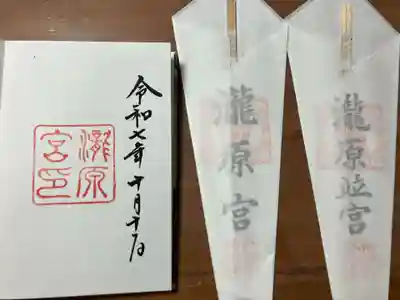 令和七年 十月十日
瀧原
宮印
瀧原宮
瀧原竝宮